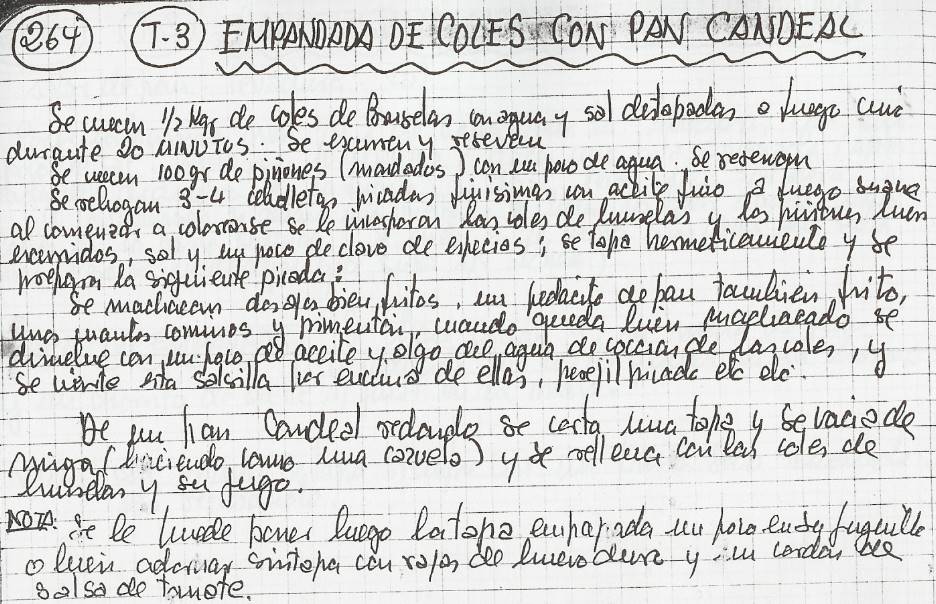 264 T-3 EMPANDADA DE COLES CON PAN CANDEAL
Se cuecen 1/2 Kgr de coles de Bruselas con agua y sal destapadas a fuego
durante 20 MINUTOS. Se escurren y reserven
Se cuecen 100 gr de piñones (mondados) con un poco de agua. Se reservan
Se rehogan 3-4 cebolletas picadas finisimas con aceite frio a fuego suave
al comenzar a colorearse se le incorporan las coles de bruselas y los piñones bien
escurridos, sal y un poco de clavo de especias; se tapa hermeticamente y se
prepara la siguiente picada:
Se machacan dos ajos bien fritos, un pedacito de pan tambien frito,
unos cuantos cominos y pimentón, cuando queda bien machacado se
disuelve con un poco de aceite y algo del agua de coccion de las coles, y
se vierte esta salsilla por encima de ellas, perejil picado etc etc.
De un pan Candeal redondo se corta una tapa y se vacia de
miga (haciendo como una cazuela) y se rellena con las coles de
bruselas y su jugo.
NOTA: Se le puede poner luego la tapa empapada un poco en su juguillo
o bien adornar sin tapa con rajas de huevo duro y un cordon de
salsa de tomate.